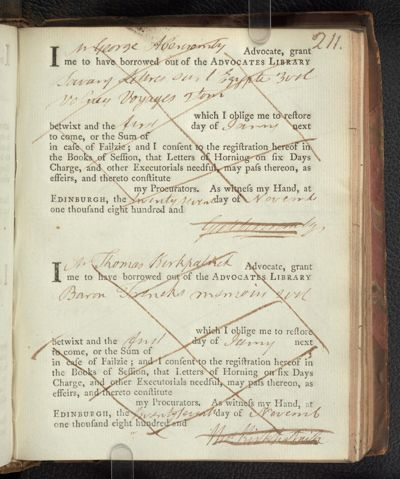 211.
I Mr George Abercromby Advocate, grant
me to have borrowed out of the ADVOCATES LIBRARY
Savary Lettres sur l'Egypte 3 vol
Volney Voyages 2 tom
which I oblige me to restore
betwixt and the first day of Janry next
to come, or the Sum of
in case of Failzie; and I consent to the registration hereof in
the Books of Session, that Letters of Horning on six Days
Charge, and other Executorials needful, may pass thereon, as
effeirs, and thereto constitute
my Procurators. As witness my Hand, at
EDINBURGH, the twenty seven day of Novemb
one thousand eight hundred and
I Mr Thomas Kirkpatrick Advocate, grant
me to have borrowed out of the ADVOCATES LIBRARY
Baron Trencks memoirs vol
which I oblige me to restore
betwixt and the first day of Janry next
to come, or the Sum of
in case of Failzie; and I consent to the registration hereof in
the Books of Session, that Letters of Horning on six Days
Charge, and other Executorials needful, may pass thereon, as
effeirs, and thereto constitute
my Procurators. As witness my Hand, at
EDINBURGH, the twenty seventh day of Novemb
one thousand eight hundred and
Tho Kirkpatrick